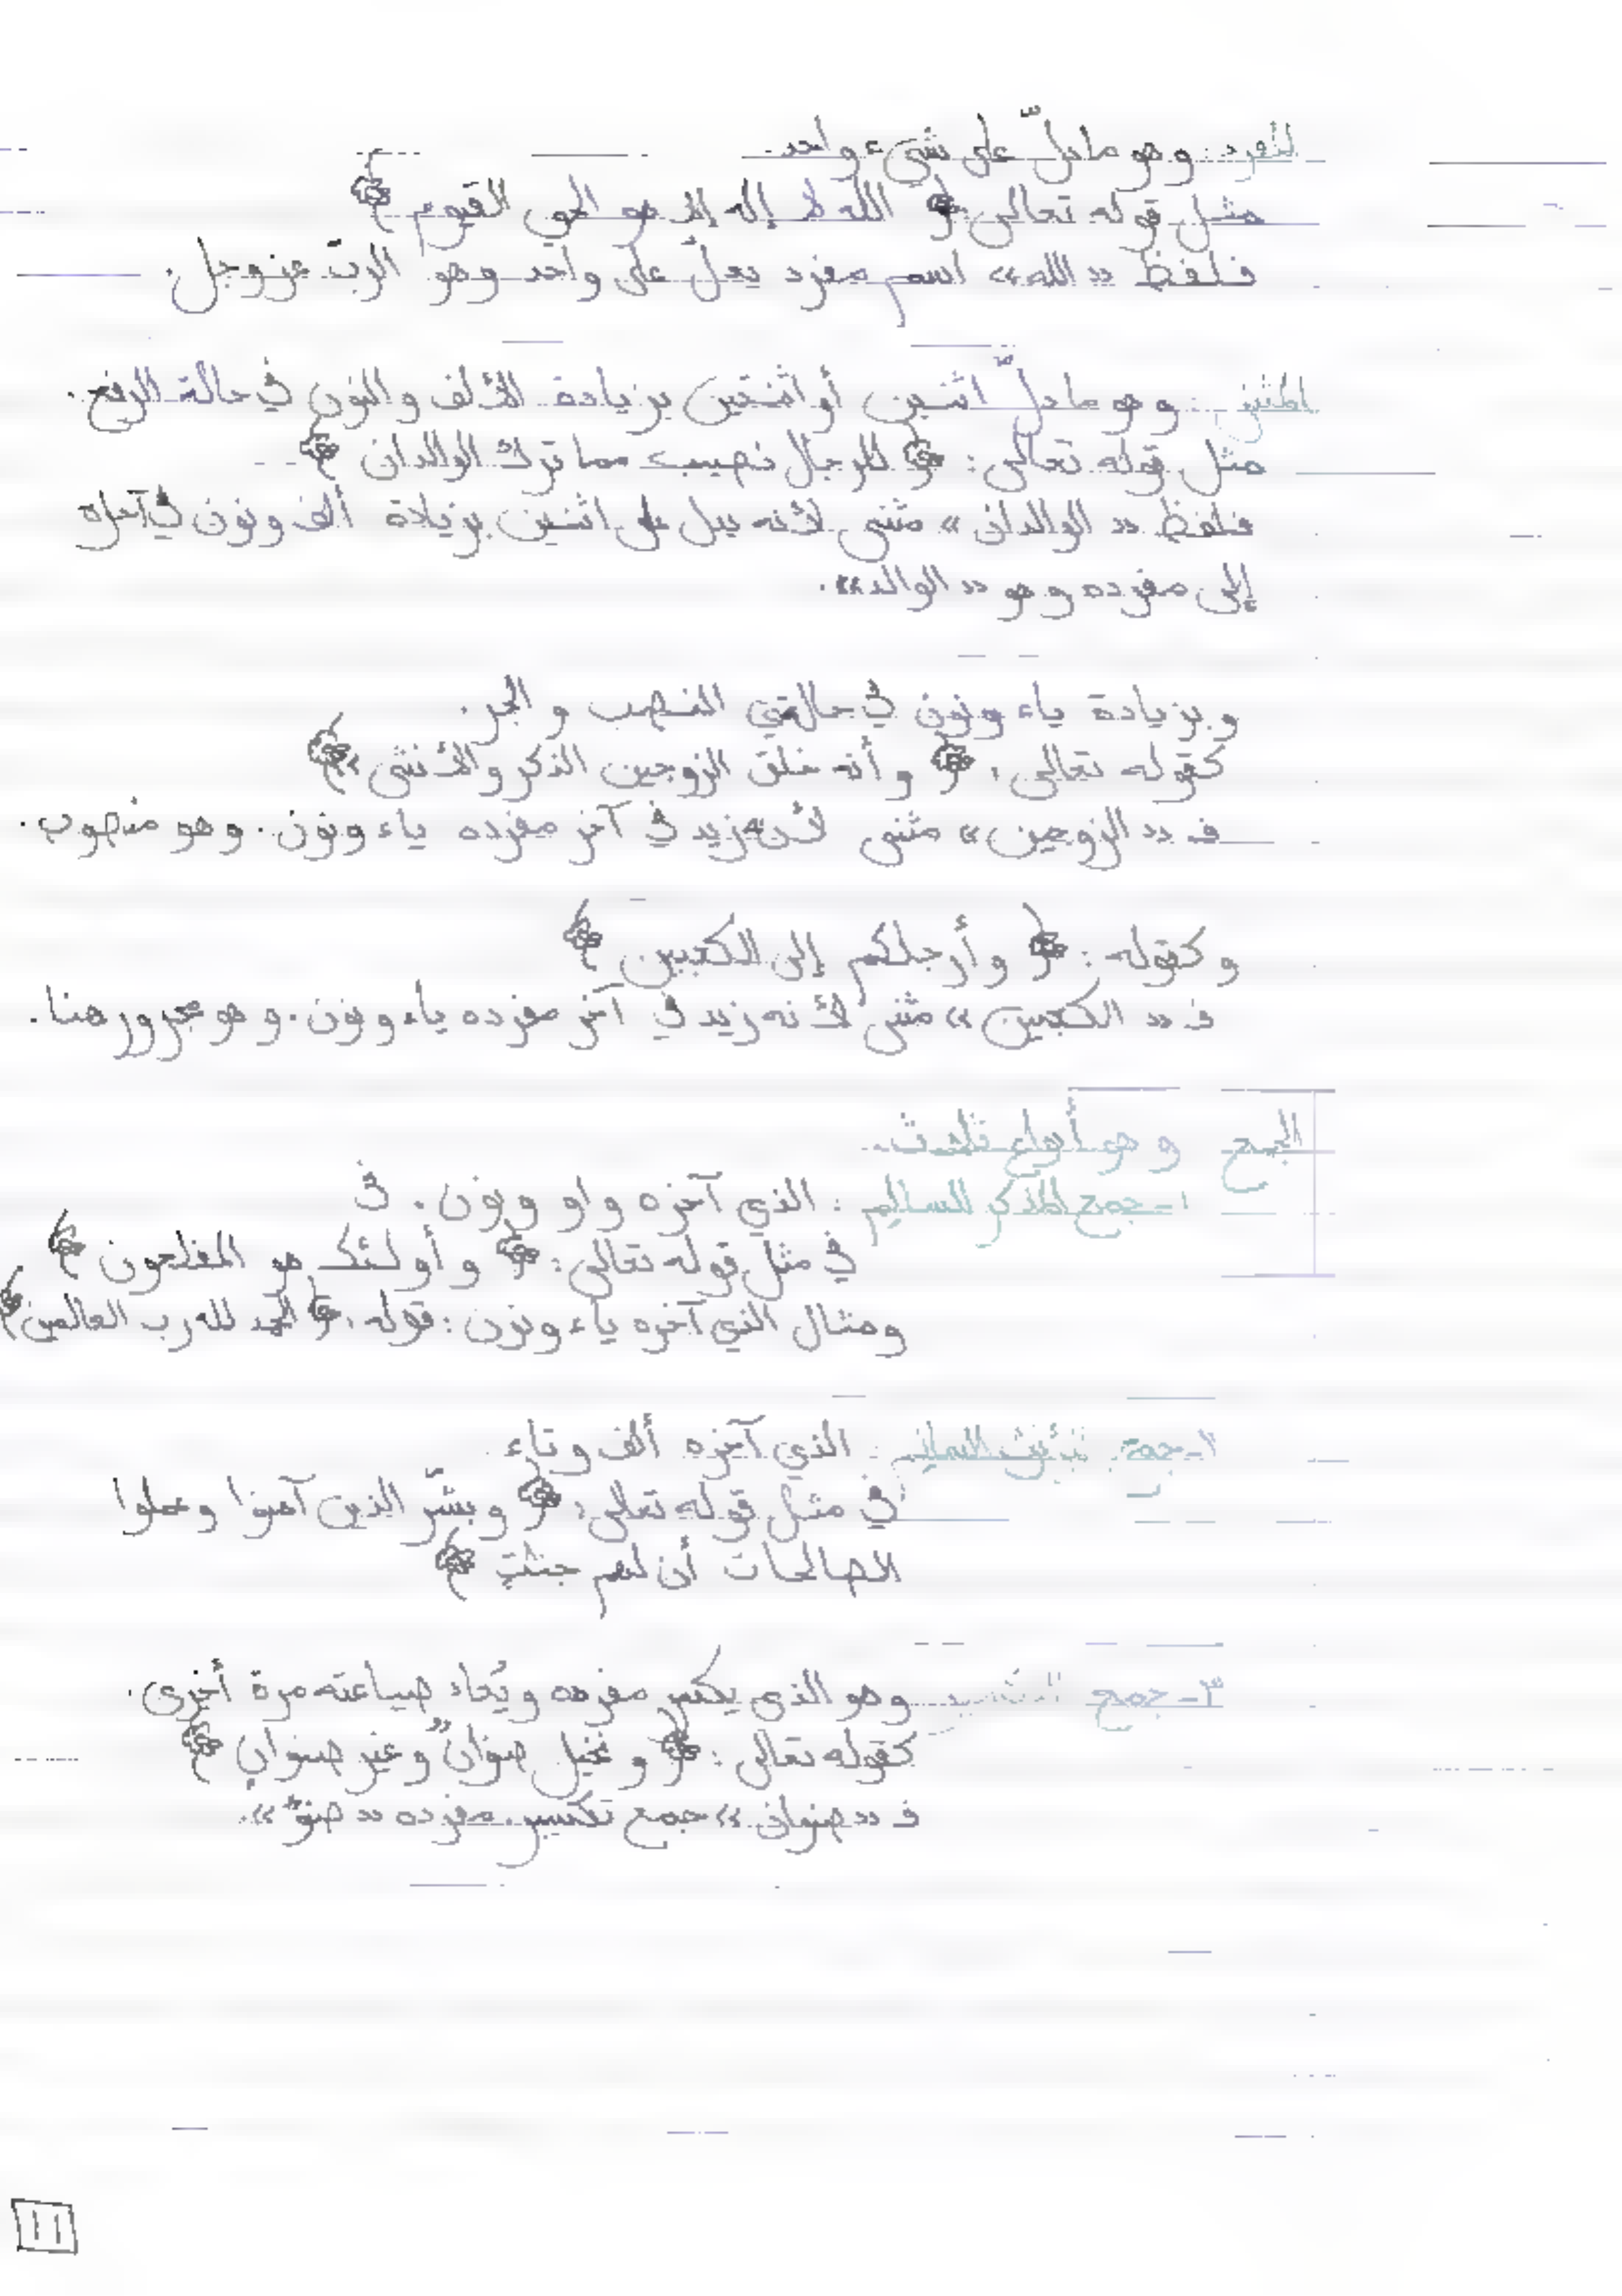 المفرد: وهو ما دلّ على شيء واحد.
مثل قوله تعالى: ﴿ الله لا إله إلا هو الحي القيوم ﴾
فلفظ «الله» اسم مفرد يدلّ على واحد وهو الربّ عز وجل.
المثنى: وهو ما دلّ اثنين أو اثنتين بزيادة الألف والنون في حالة الرفع.
مثل قوله تعالى: ﴿ للرجال نصيب مما ترك الوالدان ﴾
فلفظ «الوالدان» مثنى لأنه يدل على اثنين بزيادة ألف ونون في آخره
إلى مفرده وهو «الوالد».
وبزيادة ياء ونون في حالتي النصب والجر.
كقوله تعالى: ﴿ وأنه خلق الزوجين الذكر والأنثى ﴾
فـ «الزوجين» مثنى لأنه زيد في آخر مفرده ياء ونون. وهو منصوب.
وكقوله: ﴿ وأرجلكم إلى الكعبين ﴾
فـ «الكعبين» مثنى لأنه زيد في آخر مفرده ياء ونون. وهو مجرور هنا.
الجمع وهو أنواع ثلاث..
١- جمع المذكر السالم: الذي آخره واو ونون. في
في مثل قوله تعالى: ﴿ وأولئك هو المفلحون ﴾
ومثال الذي آخره ياء ونون: قوله: ﴿ الحمد لله رب العالمين ﴾
٢- جمع المؤنث السالم: الذي آخره ألف وتاء
في مثل قوله تعالى: ﴿ وبشّر الذين آمنوا وعملوا
الصالحات أن لهم جنّٰتٍ ﴾
٣- جمع التكسير وهو الذي يكسر مفرده ويُعاد صياغته مرة أخرى.
كقوله تعالى: ﴿ ونخيل صنوانٌ وغير صنوانٍ ﴾
فـ «صنوان» جمع تكسير. مفرده «صنوٌ».
١١